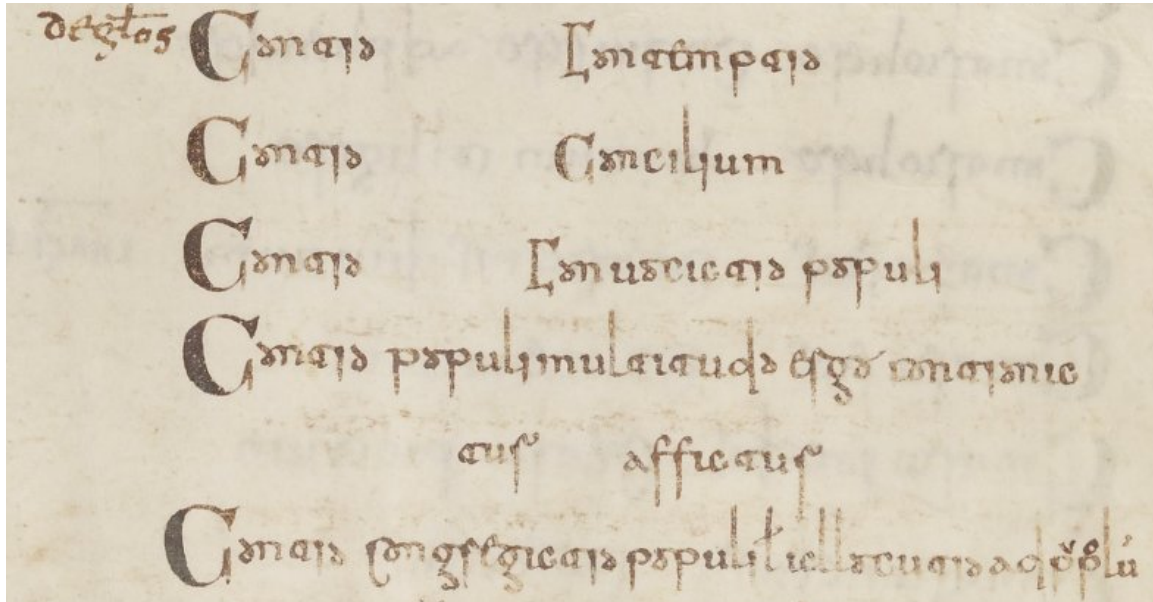 de glos Contio Contemptio
Contio Concilium
Contio Conuocatio populi
Contio populi multitudo ergo contiona
tus affatus
Contio congregatio populi ł allocutio ad pplū